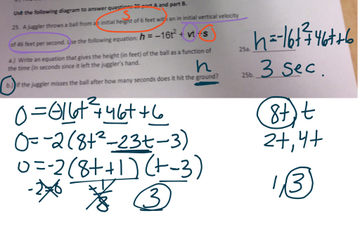 Use the following diagram to answer questions 25 part A and part B.
25. A juggler throws a ball from an initial height of 6 feet with an initial vertical velocity
of 46 feet per second. Use the following equation: h = -16t² + vt + s
a.) Write an equation that gives the height (in feet) of the ball as a function of
the time (in seconds) since it left the juggler's hand.
h
25a. h=-16t²+46t+6
b. If the juggler misses the ball after how many seconds does it hit the ground?
25b. 3 sec.
0 = -16t² + 46t + 6
0 = -2(8t² - 23t - 3)
0 = -2(8t + 1)(t - 3)
-2≠0
-1
8
3
8t, t
2t, 4t
1, 3